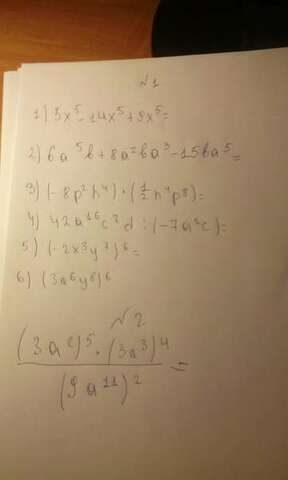 №1
1) 3x⁵ - 14x⁵ + 9x⁵ =
2) 6a⁵b + 8a²ba³ - 15ba⁵ =
3) (-8p²h⁴) · (1/2 h⁴p⁸) =
4) 42a¹⁶c³d : (-7a²c) =
5) (-2x³y⁷)⁶ =
6) (3a⁶y⁶)⁶
№2
(3a²)⁵ · (3a³)⁴
(9a¹¹)² =